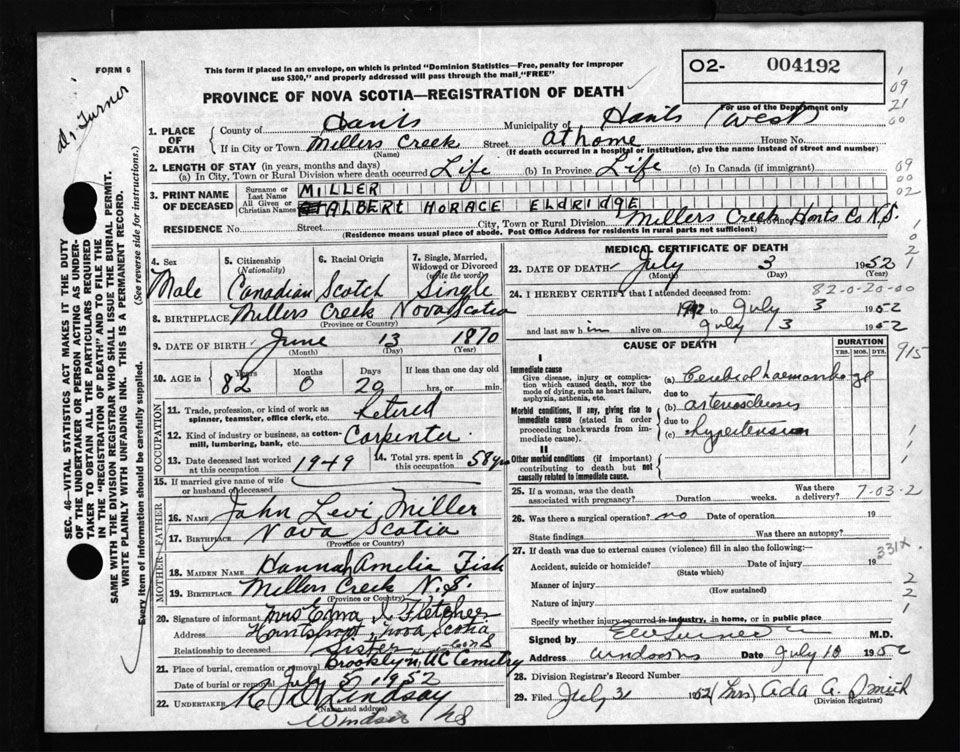 FORM 6
This form if placed in an envelope, on which is printed "Dominion Statistics—Free, penalty for improper
use $300," and properly addressed will pass through the mail "FREE"
O2- 004192
For use of the Department only
PROVINCE OF NOVA SCOTIA—REGISTRATION OF DEATH
Dr Turner
1. PLACE OF DEATH
County of Hants Municipality of Hants West
If in City or Town Millers Creek Street at home House No.
(Name) (If death occurred in a hospital or institution, give the name instead of street and number)
2. LENGTH OF STAY (in years, months and days)
(a) In City, Town or Rural Division where death occurred Life (b) In Province Life (c) In Canada (if immigrant)
3. PRINT NAME OF DECEASED
Surname or Last Name MILLER
All Given or Christian Names ALBERT HORACE ELDRIDGE
RESIDENCE No. Street City, Town or Rural Division Millers Creek Hants Co N.S. Province
(Residence means usual place of abode. Post Office Address for residents in rural parts not sufficient)
4. Sex
Male
5. Citizenship
(Nationality)
Canadian
6. Racial Origin
Scotch
7. Single, Married, Widowed or Divorced
(write the word)
Single
8. BIRTHPLACE Millers Creek Nova Scotia
(Province or Country)
9. DATE OF BIRTH June 13 1870
(Month) (Day) (Year)
10. AGE in
Years Months Days If less than one day old
82 0 20 hrs. or min.
OCCUPATION
11. Trade, profession, or kind of work as spinner, teamster, office clerk, etc. Retired
12. Kind of industry or business, as cotton-mill, lumbering, bank, etc. Carpenter
13. Date deceased last worked at this occupation 1949
14. Total yrs. spent in this occupation 58 yrs
15. If married give name of wife or husband of deceased
FATHER
16. NAME John Levi Miller
17. BIRTHPLACE Nova Scotia
(Province or Country)
MOTHER
18. MAIDEN NAME Hannah Amelia Fish
19. BIRTHPLACE Millers Creek N.S.
(Province or Country)
20. Signature of informant Mrs Edna Fletcher
Address Hantsport Nova Scotia
Relationship to deceased Sister
21. Place of burial, cremation or removal Brooklyn UC Cemetry
Date of burial or removal July 5, 1952
22. UNDERTAKER Lindsay
(Name and address)
Windsor NS
MEDICAL CERTIFICATE OF DEATH
23. DATE OF DEATH July 3 1952
(Month) (Day) (Year)
82-0-20-00
24. I HEREBY CERTIFY that I attended deceased from:
to July 3 1952
and last saw him alive on July 3 1952
CAUSE OF DEATH
DURATION
YRS. MOS. DYS.
I
Immediate cause
Give disease, injury or complication which caused death, NOT the mode of dying, such as heart failure, asphyxia, asthenia, etc.
(a) Cerebral haemorrhage
due to
Morbid conditions, if any, giving rise to immediate cause (stated in order proceeding backwards from immediate cause).
(b) arteriosclerosis
due to
(c) Hypertension
II
Other morbid conditions (if important) contributing to death but not causally related to immediate cause.
25. If a woman, was the death associated with pregnancy? Duration weeks. Was there a delivery? 7-03-2
26. Was there a surgical operation? no Date of operation 19
State findings Was there an autopsy?
27. If death was due to external causes (violence) fill in also the following:—
331X
Accident, suicide or homicide? Date of injury 19
(State which)
Manner of injury
(How sustained)
Nature of injury
Specify whether injury occurred in industry, in home, or in public place
Signed by M.D.
Address Windsor NS Date July 10 1952
28. Division Registrar's Record Number
29. Filed July 31 1952 (Mrs) Ada A. Smith
(Division Registrar)
SEC. 46—VITAL STATISTICS ACT MAKES IT THE DUTY
OF THE UNDERTAKER OR PERSON ACTING AS UNDERTAKER TO OBTAIN ALL THE PARTICULARS REQUIRED
IN THE "REGISTRATION OF DEATH" AND TO FILE THE
SAME WITH THE DIVISION REGISTRAR WHO SHALL ISSUE THE BURIAL PERMIT.
WRITE PLAINLY WITH UNFADING INK. THIS IS A PERMANENT RECORD.
Every item of information should be carefully supplied. (See reverse side for instructions.)
1
09
21
00
09
00
02
1
0
2
1
915
1
1
2
2
1